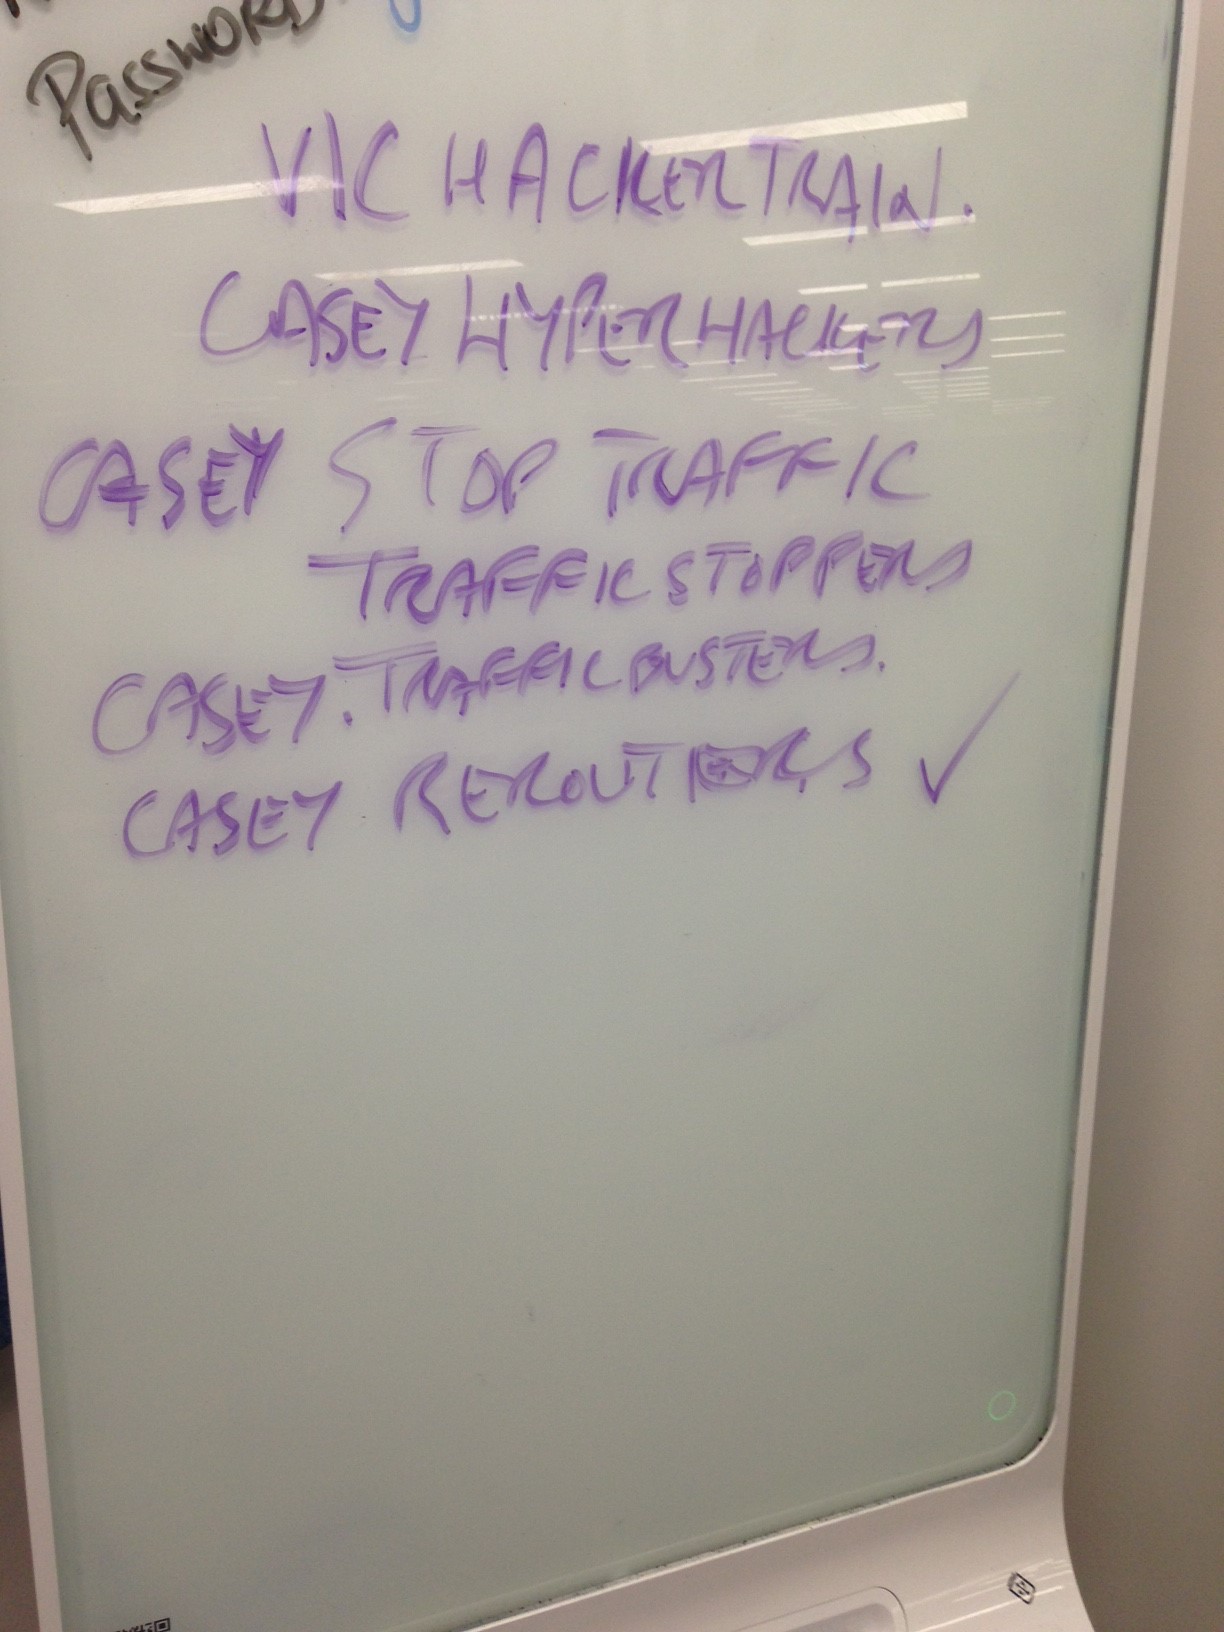 PASSWORD
VIC HACKERTRAIN.
CASEY HYPERHACKERS
CASEY STOP TRAFFIC
TRAFFIC STOPPERS
CASEY. TRAFFICBUSTERS.
CASEY REROUTERS ✓